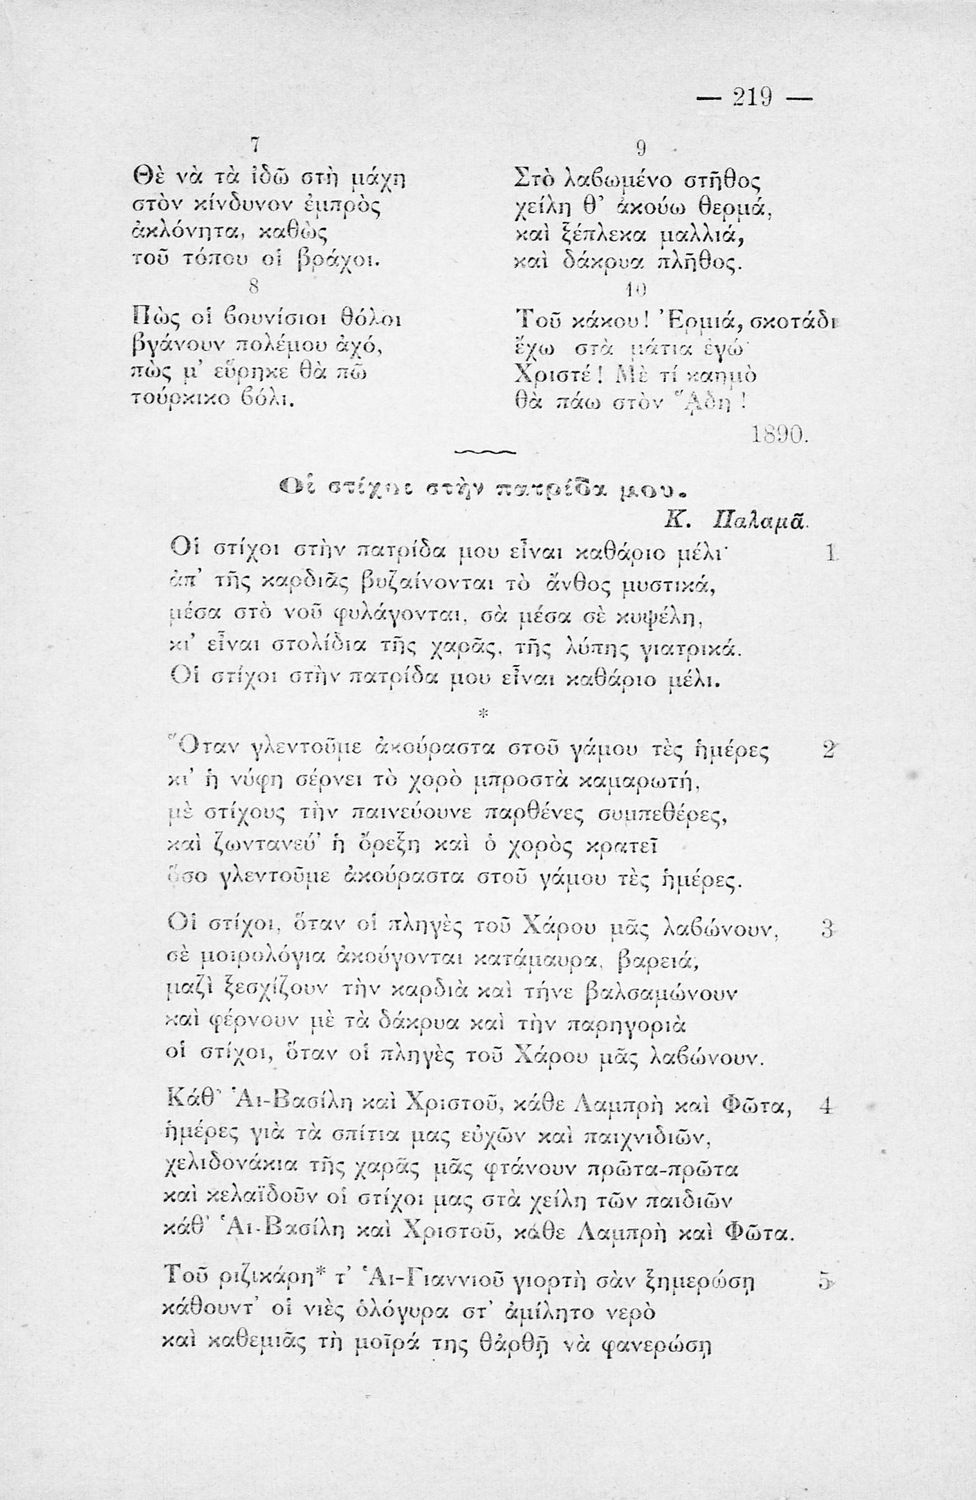 — 219 —
7
Θὲ νὰ τὰ ἰδῶ στὴ μάχη
στὸν κίνδυνον ἐμπρὸς
ἀκλόνητα, καθὼς
τοῦ τόπου οἱ βράχοι.
8
Πὼς οἱ βουνίσιοι θόλοι
βγάνουν πολέμου ἀχό,
πὼς μ' εὕρηκε θὰ πῶ
τούρκικο βόλι.
9
Στὸ λαβωμένο στῆθος
χείλη θ' ἀκούω θερμά,
καὶ ξέπλεκα μαλλιά,
καὶ δάκρυα πλῆθος.
10
Τοῦ κάκου! Ἐρμιά, σκοτάδι
ἔχω στὰ μάτια ἐγώ·
Χριστέ! Μὲ τί καημὸ
θὰ πάω στὸν Ἅδη!
1890.
Οἱ στίχοι στὴν πατρίδα μου.
Κ. Παλαμᾶ.
Οἱ στίχοι στὴν πατρίδα μου εἶναι καθάριο μέλι· 1
ἀπ' τῆς καρδιᾶς βυζαίνονται τὸ ἄνθος μυστικά,
μέσα στὸ νοῦ φυλάγονται, σὰ μέσα σὲ κυψέλη,
κι' εἶναι στολίδια τῆς χαρᾶς, τῆς λύπης γιατρικά.
Οἱ στίχοι στὴν πατρίδα μου εἶναι καθάριο μέλι.
*
Ὅταν γλεντοῦμε ἀκούραστα στοῦ γάμου τὲς ἡμέρες 2
κι' ἡ νύφη σέρνει τὸ χορὸ μπροστὰ καμαρωτή,
μὲ στίχους τὴν παινεύουνε παρθένες συμπεθέρες,
καὶ ζωντανεύ' ἡ ὄρεξη καὶ ὁ χορὸς κρατεῖ
ὅσο γλεντοῦμε ἀκούραστα στοῦ γάμου τὲς ἡμέρες.
Οἱ στίχοι, ὅταν οἱ πληγὲς τοῦ Χάρου μᾶς λαβώνουν, 3
σὲ μοιρολόγια ἀκούγονται κατάμαυρα, βαρειά,
μαζὶ ξεσχίζουν τὴν καρδιὰ καὶ τήνε βαλσαμώνουν
καὶ φέρνουν μὲ τὰ δάκρυα καὶ τὴν παρηγοριὰ
οἱ στίχοι, ὅταν οἱ πληγὲς τοῦ Χάρου μᾶς λαβώνουν.
Κάθ' Ἁι-Βασίλη καὶ Χριστοῦ, κάθε Λαμπρὴ καὶ Φῶτα, 4
ἡμέρες γιὰ τὰ σπίτια μας εὐχῶν καὶ παιχνιδιῶν,
χελιδονάκια τῆς χαρᾶς μᾶς φτάνουν πρῶτα-πρῶτα
καὶ κελαϊδοῦν οἱ στίχοι μας στὰ χείλη τῶν παιδιῶν
κάθ' Ἁι-Βασίλη καὶ Χριστοῦ, κάθε Λαμπρὴ καὶ Φῶτα.
Τοῦ ριζικάρη* τ' Ἁι-Γιαννιοῦ γιορτὴ σὰν ξημερώσῃ 5
κάθουντ' οἱ νιὲς ὁλόγυρα στ' ἀμίλητο νερὸ
καὶ καθεμιᾶς τὴ μοῖρά της θἀρθῇ νὰ φανερώσῃ